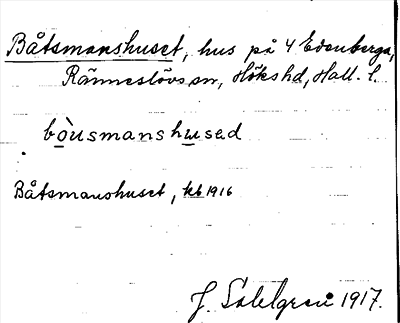 Båtsmanshuset, hus på 4 Edenberga,
Ränneslövs sn, Hökshd, Hall. l.
bòusmanshused
Båtsmanshuset, kb 1916
J. Sahlgren 1917.